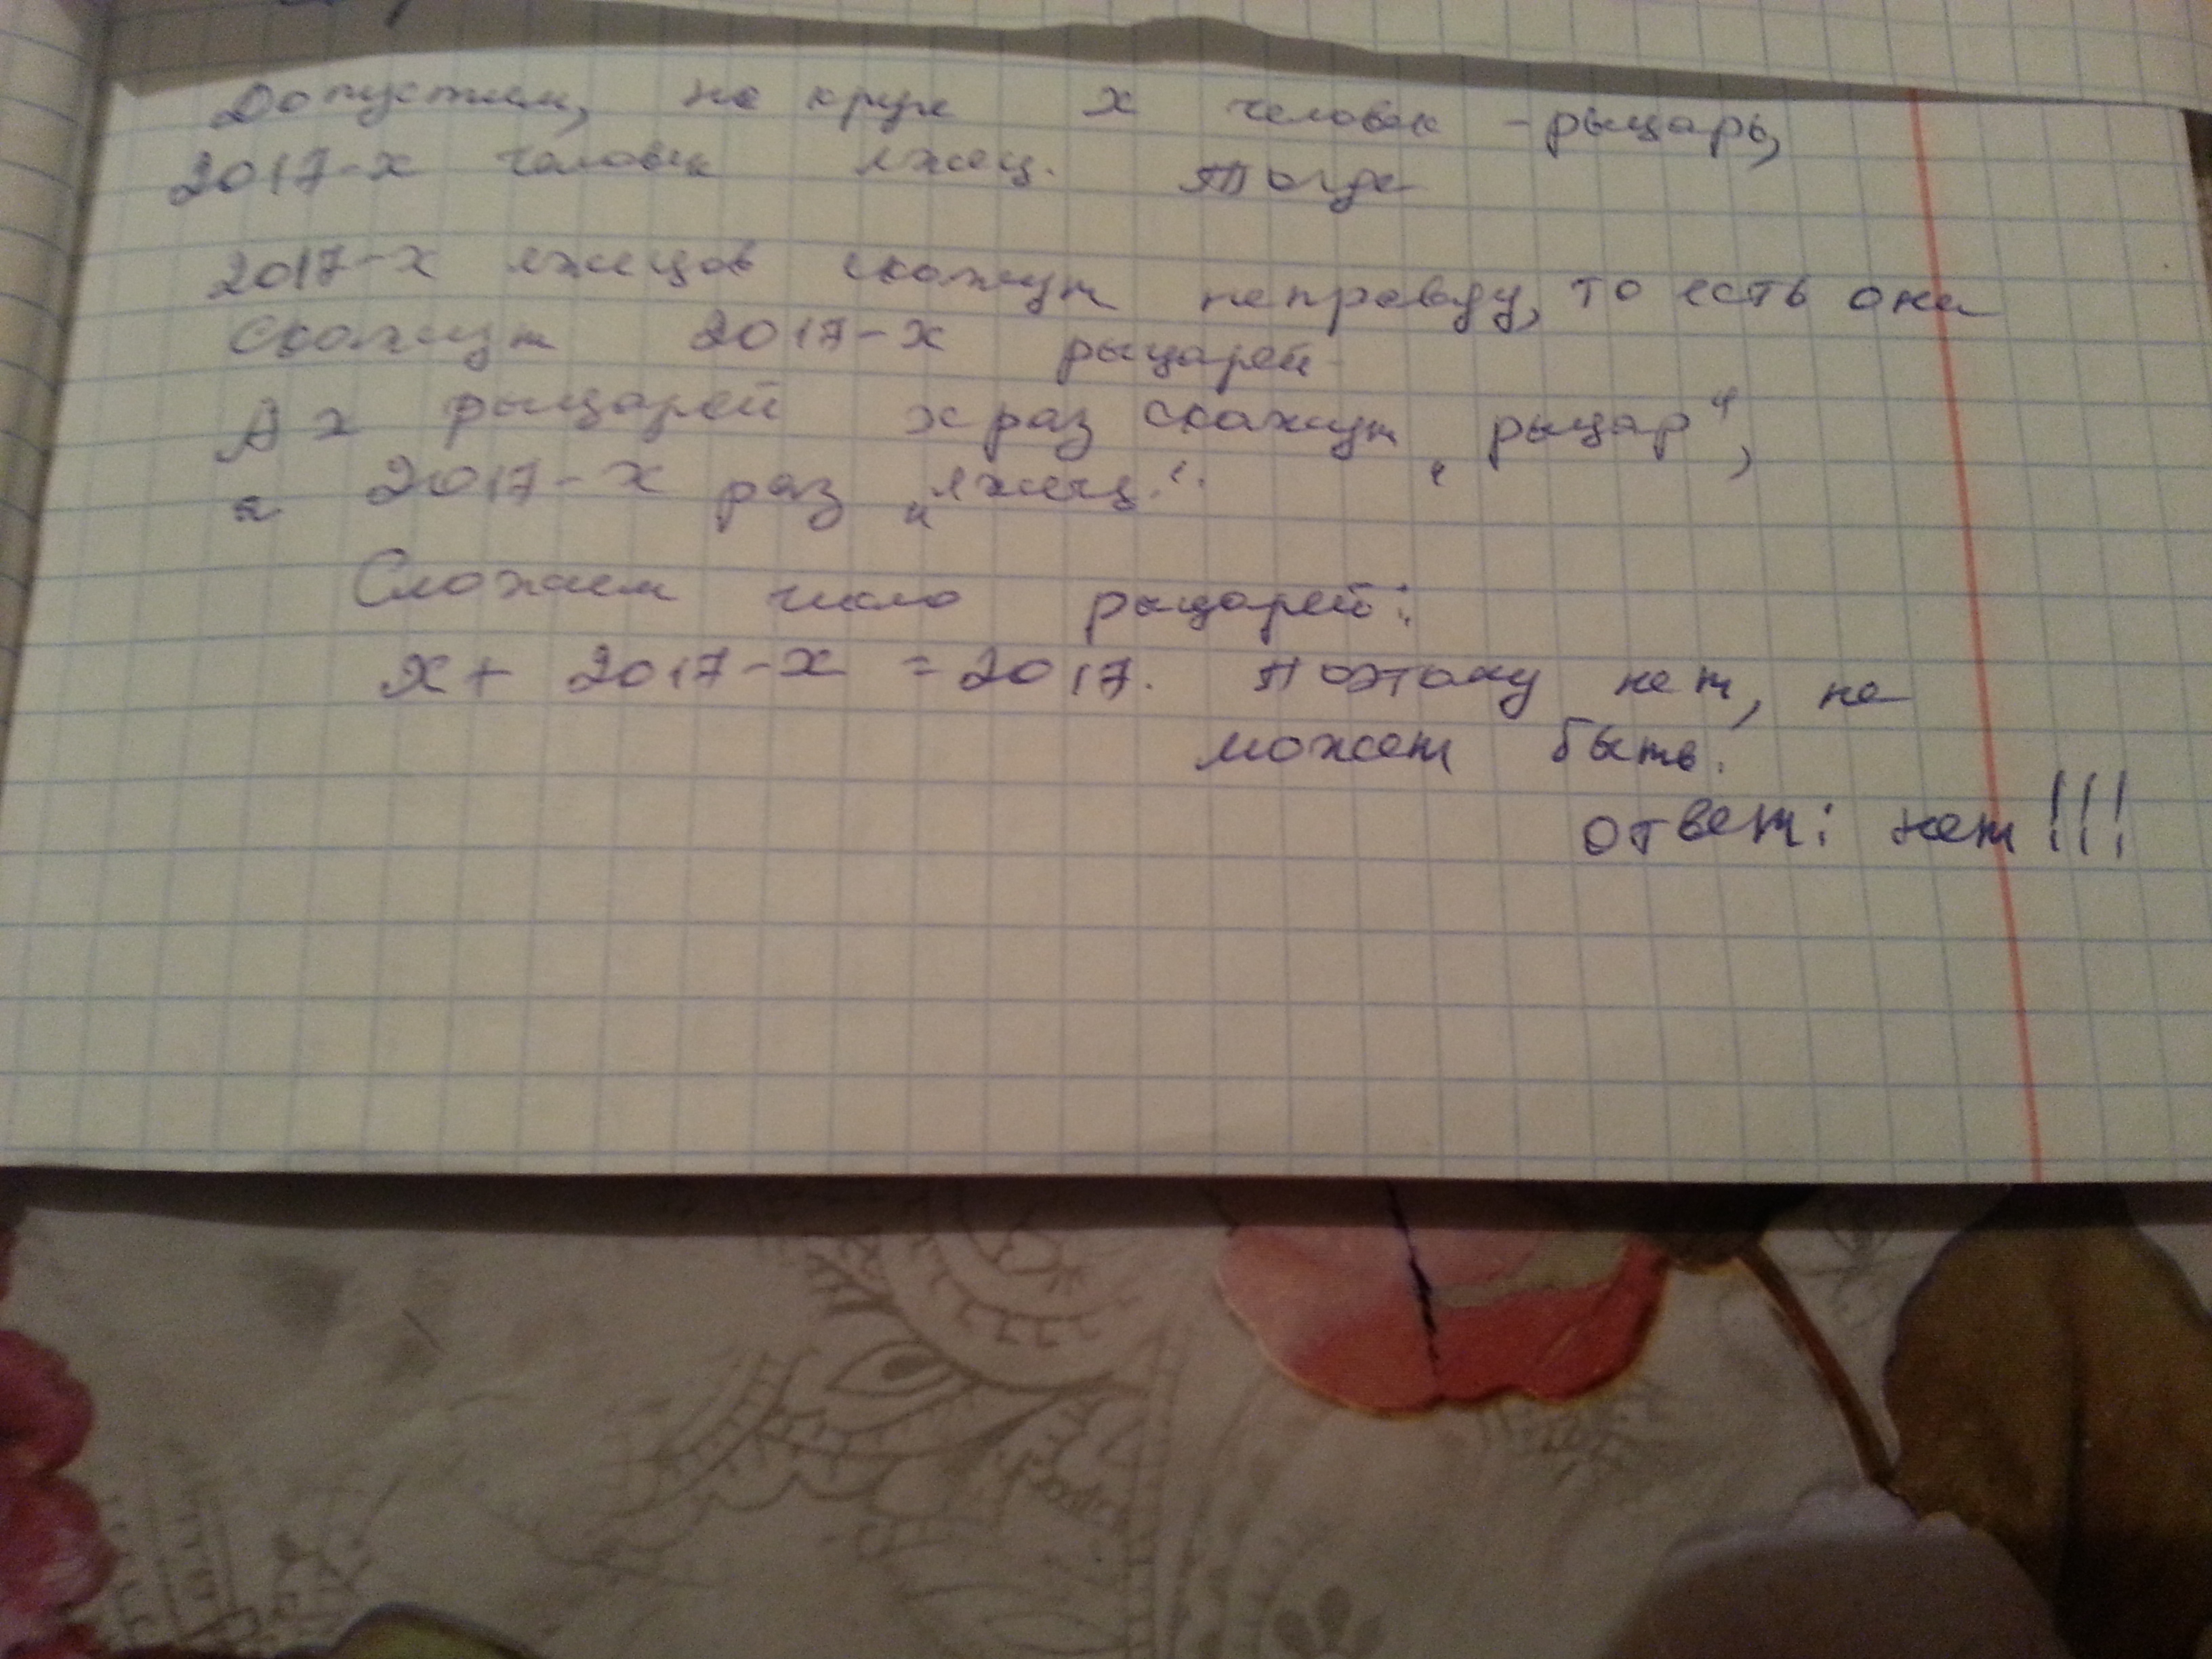 Допустим, на круге х человек - рыцарь,
2017-х человек лжец. Тогда
2017-х лжецов скажут неправду, то есть они
скажут 2017-х рыцарей
А х рыцарей х раз скажут „рыцар“,
а 2017-х раз „лжец“.
Сложим число рыцарей:
х + 2017-х = 2017. Поэтому нет, не
может быть.
ответ: нет!!!